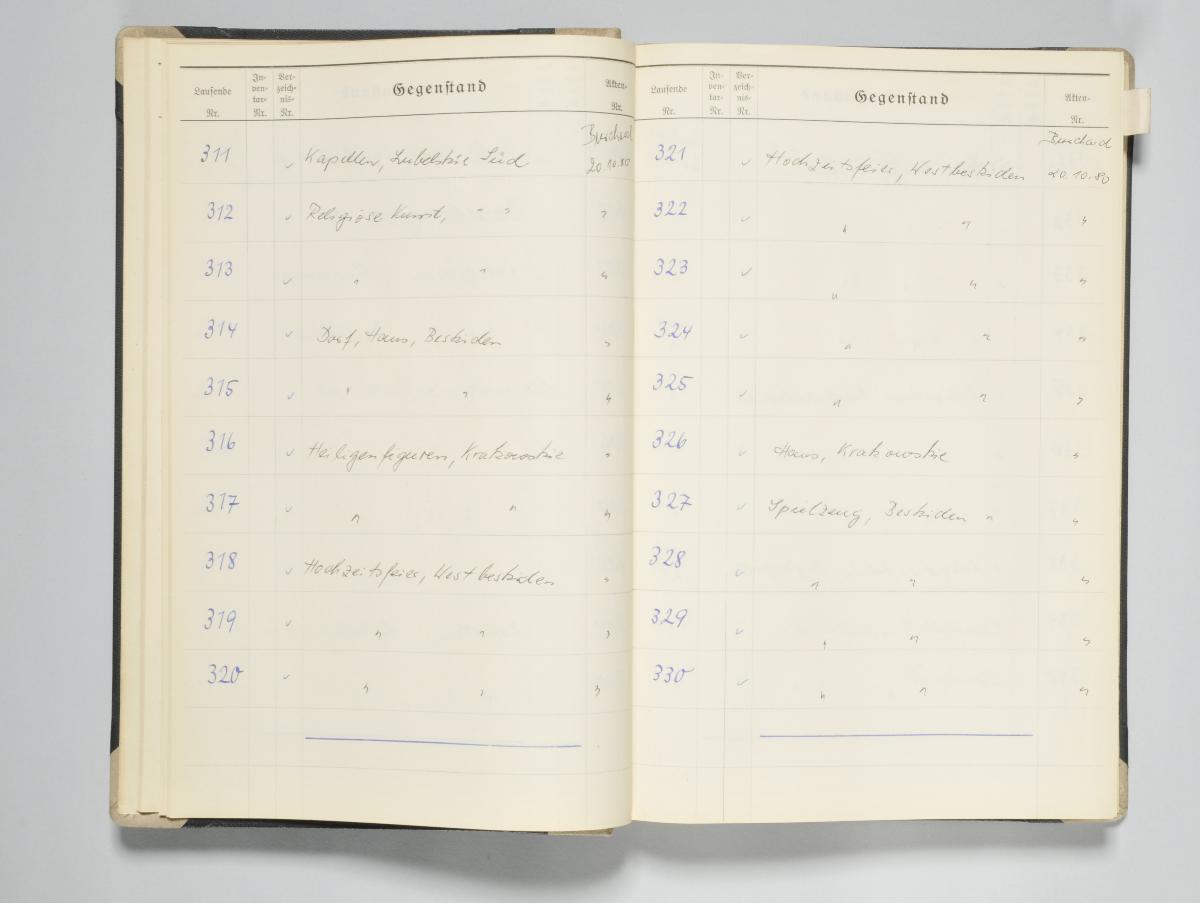 Laufende Nr. In- ven- tar- Nr. Ver- zeich- nis- Nr. Gegenstand Akten- Nr.
Burchard
311 ✓ Kapellen, Lubelskie Süd 20.10.80
312 ✓ Religiöse Kunst, " " "
313 ✓ " " "
314 ✓ Dorf, Haus, Beskiden "
315 ✓ " " "
316 ✓ Heiligenfiguren, Krakowskie "
317 ✓ " " "
318 ✓ Hochzeitsfeier, Westbeskiden "
319 ✓ " " "
320 ✓ " " "
Laufende Nr. In- ven- tar- Nr. Ver- zeich- nis- Nr. Gegenstand Akten- Nr.
Burchard
321 ✓ Hochzeitsfeier, Westbeskiden 20.10.80
322 ✓ " " "
323 ✓ " " "
324 ✓ " " "
325 ✓ " " "
326 ✓ Haus, Krakowskie "
327 ✓ Spielzeug, Beskiden " "
328 ✓ " " "
329 ✓ " " "
330 ✓ " " "